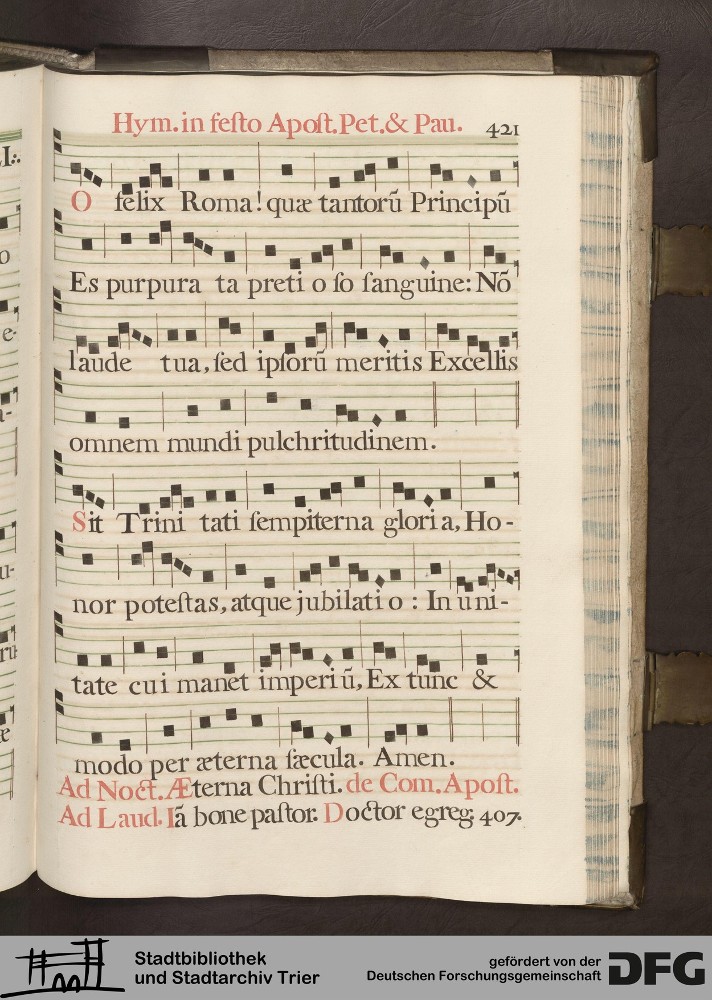 Hym. in feſto Apoſt. Pet. & Pau. 421
O felix Roma! quæ tantorū Principū
Es purpura ta preti o ſo ſanguine: Nō
laude tua, ſed ipſorū meritis Excellis
omnem mundi pulchritudinem.
Sit Trini tati ſempiterna gloria, Ho-
nor poteſtas, atque jubilatio: In uni-
tate cui manet imperiū, Ex tunc &
modo per æterna ſæcula. Amen.
Ad Noct. Æterna Chriſti. de Com. Apoſt.
Ad Laud. Iā bone paſtor. Doctor egreg. 407.
LI.
o
e-
a-
u-
rū
æ
Stadtbibliothek
und Stadtarchiv Trier
gefördert von der
Deutschen Forschungsgemeinschaft
DFG